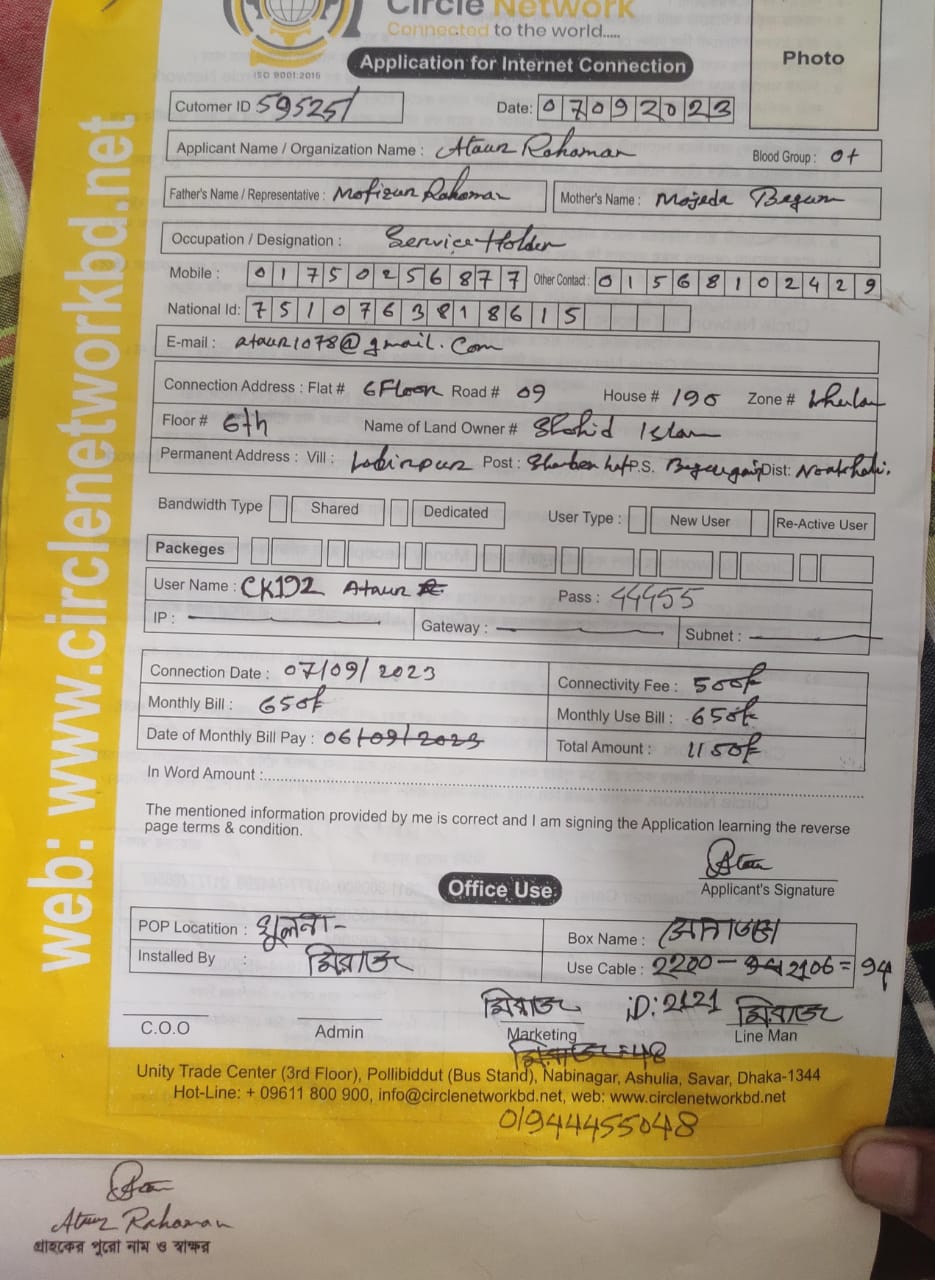 Circle Network
Connected to the world.....
ISO 9001:2015
Application for Internet Connection
Photo
Cutomer ID 595251
Date: 07092023
Applicant Name / Organization Name : Ataur Rahoman Blood Group : O+
Father's Name / Representative : Mofizur Rahoman Mother's Name : Mojeda Begum
Occupation / Designation : Service Holder
Mobile : 01750256877 Other Contact : 01568102429
National Id: 7510763818615
E-mail : ataur1078@gmail.com
Connection Address : Flat # 6 Floor Road # 09 House # 190 Zone #
Floor # 6th Name of Land Owner # Shohid Islam
Permanent Address : Vill : Post : P.S. Dist: Noakhali.
Bandwidth Type Shared Dedicated User Type : New User Re-Active User
Packeges
User Name : CK192 Ataur Pass : 44455
IP : Gateway : Subnet :
Connection Date : 07/09/2023 Connectivity Fee : 500/-
Monthly Bill : 650/- Monthly Use Bill : 650/-
Date of Monthly Bill Pay : 06/09/2023 Total Amount : 1150/-
In Word Amount :
The mentioned information provided by me is correct and I am signing the Application learning the reverse
page terms & condition.
Applicant's Signature
Office Use
POP Locatition : খুলনা- Box Name :
Installed By : মিরাজ Use Cable : 2200 - 2106 = 94
মিরাজ ID: 2121 মিরাজ
C.O.O Admin Marketing Line Man
Unity Trade Center (3rd Floor), Pollibiddut (Bus Stand), Nabinagar, Ashulia, Savar, Dhaka-1344
Hot-Line: + 09611 800 900, info@circlenetworkbd.net, web: www.circlenetworkbd.net
01944455048
Ataur Rahoman
গ্রাহকের পুরো নাম ও স্বাক্ষর
web: www.circlenetworkbd.net